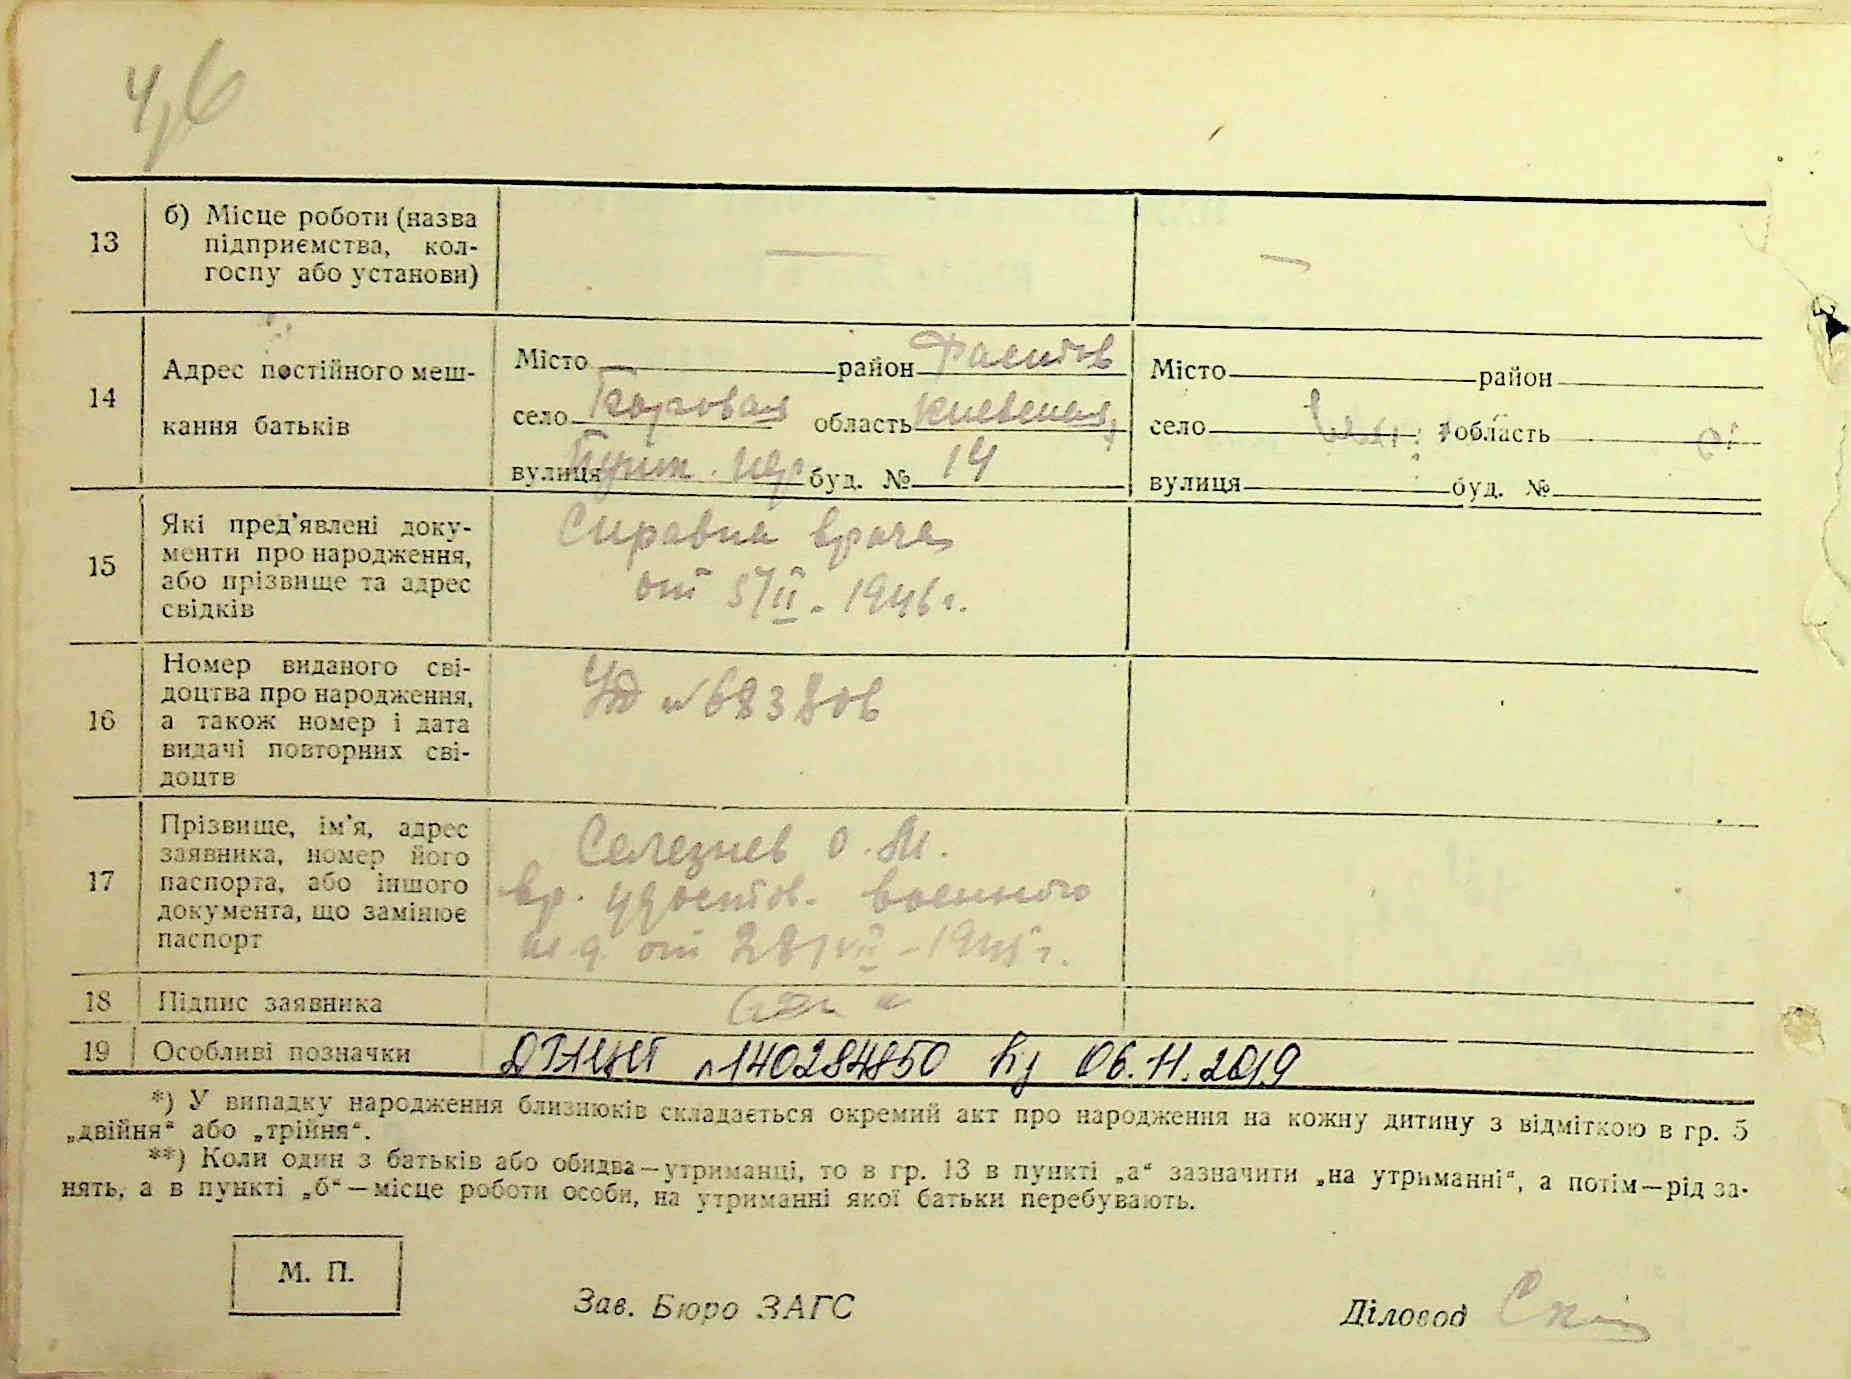 13
б) Місце роботи (назва
підприємства, кол-
госпу або установи)
—
—
14
Адрес постійного меш-
кання батьків
Місто район Фастов
село область Киевская
вулиця буд. № 14
Місто район
село область
вулиця буд. №
15
Які пред'явлені доку-
менти про народження,
або прізвище та адрес
свідків
Справка врача
от 5/II. 1946 г.
16
Номер виданого сві-
доцтва про народження,
а також номер і дата
видачі повторних сві-
доцтв
№ 683806
17
Прізвище, ім'я, адрес
заявника, номер його
паспорта, або іншого
документа, що замінює
паспорт
Селезнев О. М.
вр. удостов. военного
от 28/VII – 1945 г.
18
Підпис заявника
19
Особливі позначки
140284850 06.11.2019
*) У випадку народження близнюків складається окремий акт про народження на кожну дитину з відміткою в гр. 5
„двійня“ або „трійня“.
**) Коли один з батьків або обидва—утриманці, то в гр. 13 в пункті „а“ зазначити „на утриманні“, а потім—рід за-
нять, а в пункті „б“—місце роботи особи, на утриманні якої батьки перебувають.
М. П.
Зав. Бюро ЗАГС
Діловод